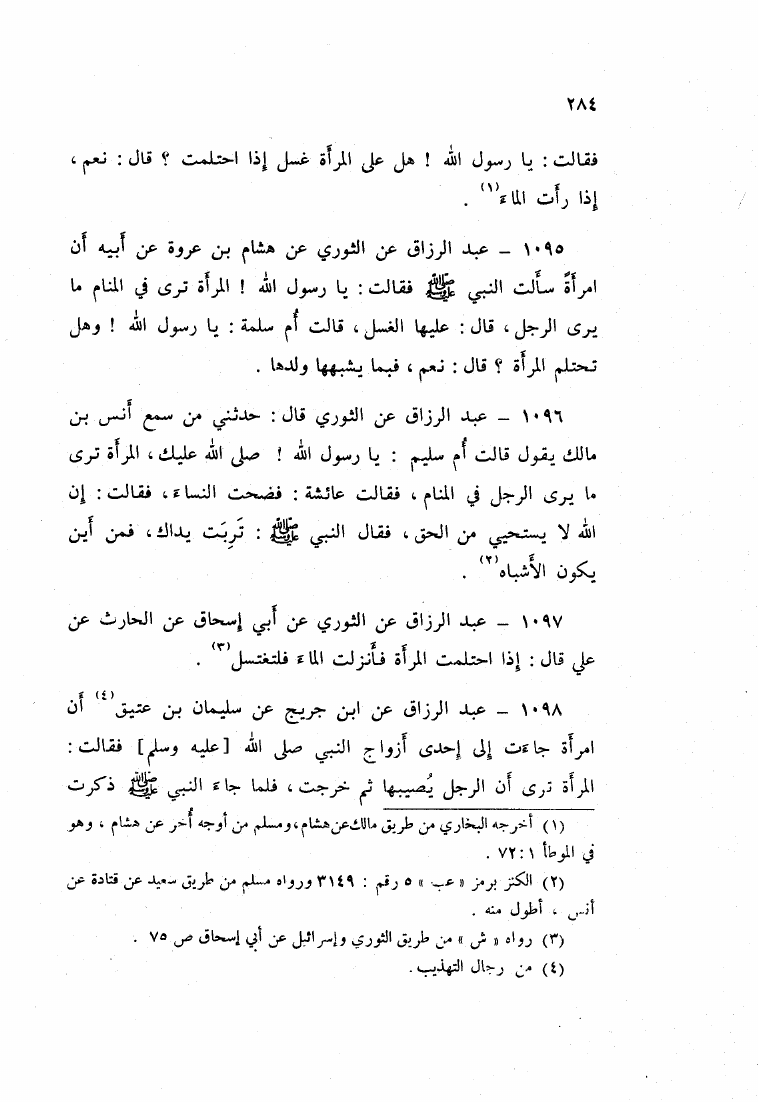 ٢٨٤
فقالت : يا رسول الله ! هل على المرأة غسل إذا احتلمت ؟ قال : نعم ،
إذا رأت الماء(١) .
١٠٩٥ – عبد الرزاق عن الثوري عن هشام بن عروة عن أبيه أن
امرأةً سألت النبي ﷺ فقالت : يا رسول الله ! المرأة ترى في المنام ما
يرى الرجل ، قال : عليها الغسل ، قالت أم سلمة : يا رسول الله ! وهل
تحتلم المرأة ؟ قال : نعم ، فبما يشبهها ولدها .
١٠٩٦ – عبد الرزاق عن الثوري قال : حدثني من سمع أنس بن
مالك يقول قالت أم سليم : يا رسول الله ! صلى الله عليك ، المرأة ترى
ما يرى الرجل في المنام ، فقالت عائشة : فضحت النساء ، فقالت : إن
الله لا يستحيي من الحق ، فقال النبي ﷺ : تَرِبَت يداك ، فمن أين
يكون الأشباه(٢) .
١٠٩٧ – عبد الرزاق عن الثوري عن أبي إسحاق عن الحارث عن
علي قال : إذا احتلمت المرأة فأنزلت الماء فلتغتسل(٣) .
١٠٩٨ – عبد الرزاق عن ابن جريج عن سليمان بن عتيق(٤) أن
امرأة جاءت إلى إحدى أزواج النبي صلى الله [عليه وسلم] فقالت :
المرأة ترى أن الرجل يُصيبها ثم خرجت ، فلما جاء النبي ﷺ ذكرت
(١) أخرجه البخاري من طريق مالك عن هشام ، ومسلم من أوجه أُخر عن هشام ، وهو
في الموطأ ١ : ٧٢ .
(٢) الكنز برمز « عب » ٥ رقم : ٣١٤٩ ورواه مسلم من طريق سعيد عن قتادة عن
أنس ، أطول منه .
(٣) رواه « ش » من طريق الثوري وإسرائيل عن أبي إسحاق ص ٧٥ .
(٤) من رجال التهذيب .